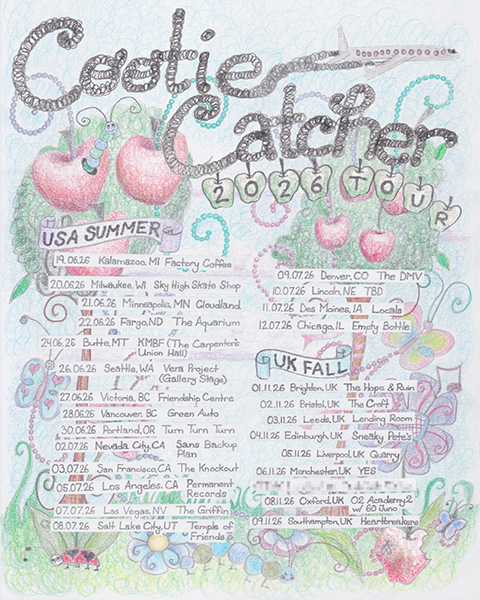 Cootie
Catcher
2026 TOUR
USA SUMMER
19.06.26 Kalamazoo, MI Factory Coffee
20.06.26 Milwaukee, WI Sky High Skate Shop
21.06.26 Minneapolis, MN Cloudland
22.06.26 Fargo, ND The Aquarium
24.06.26 Butte, MT KMBF (The Carpenter's
Union Hall)
26.06.26 Seattle, WA Vera Project
(Gallery Stage)
27.06.26 Victoria, BC Friendship Centre
28.06.26 Vancouver, BC Green Auto
30.06.26 Portland, OR Turn Turn Turn
02.07.26 Nevada City, CA Sans Backup
Plan
03.07.26 San Francisco, CA The Knockout
05.07.26 Los Angeles, CA Permanent
Records
07.07.26 Las Vegas, NV The Griffin
08.07.26 Salt Lake City, UT Temple of
Friends
09.07.26 Denver, CO The DMV
10.07.26 Lincoln, NE TBD
11.07.26 Des Moines, IA Locals
12.07.26 Chicago, IL Empty Bottle
UK FALL
01.11.26 Brighton, UK The Hope & Ruin
02.11.26 Bristol, UK The Croft
03.11.26 Leeds, UK Lending Room
04.11.26 Edinburgh, UK Sneaky Pete's
05.11.26 Liverpool, UK Quarry
06.11.26 Manchester, UK YES
08.11.26 Oxford, UK O2 Academy2
w/ 60 Juno
09.11.26 Southampton, UK Heartbreakers